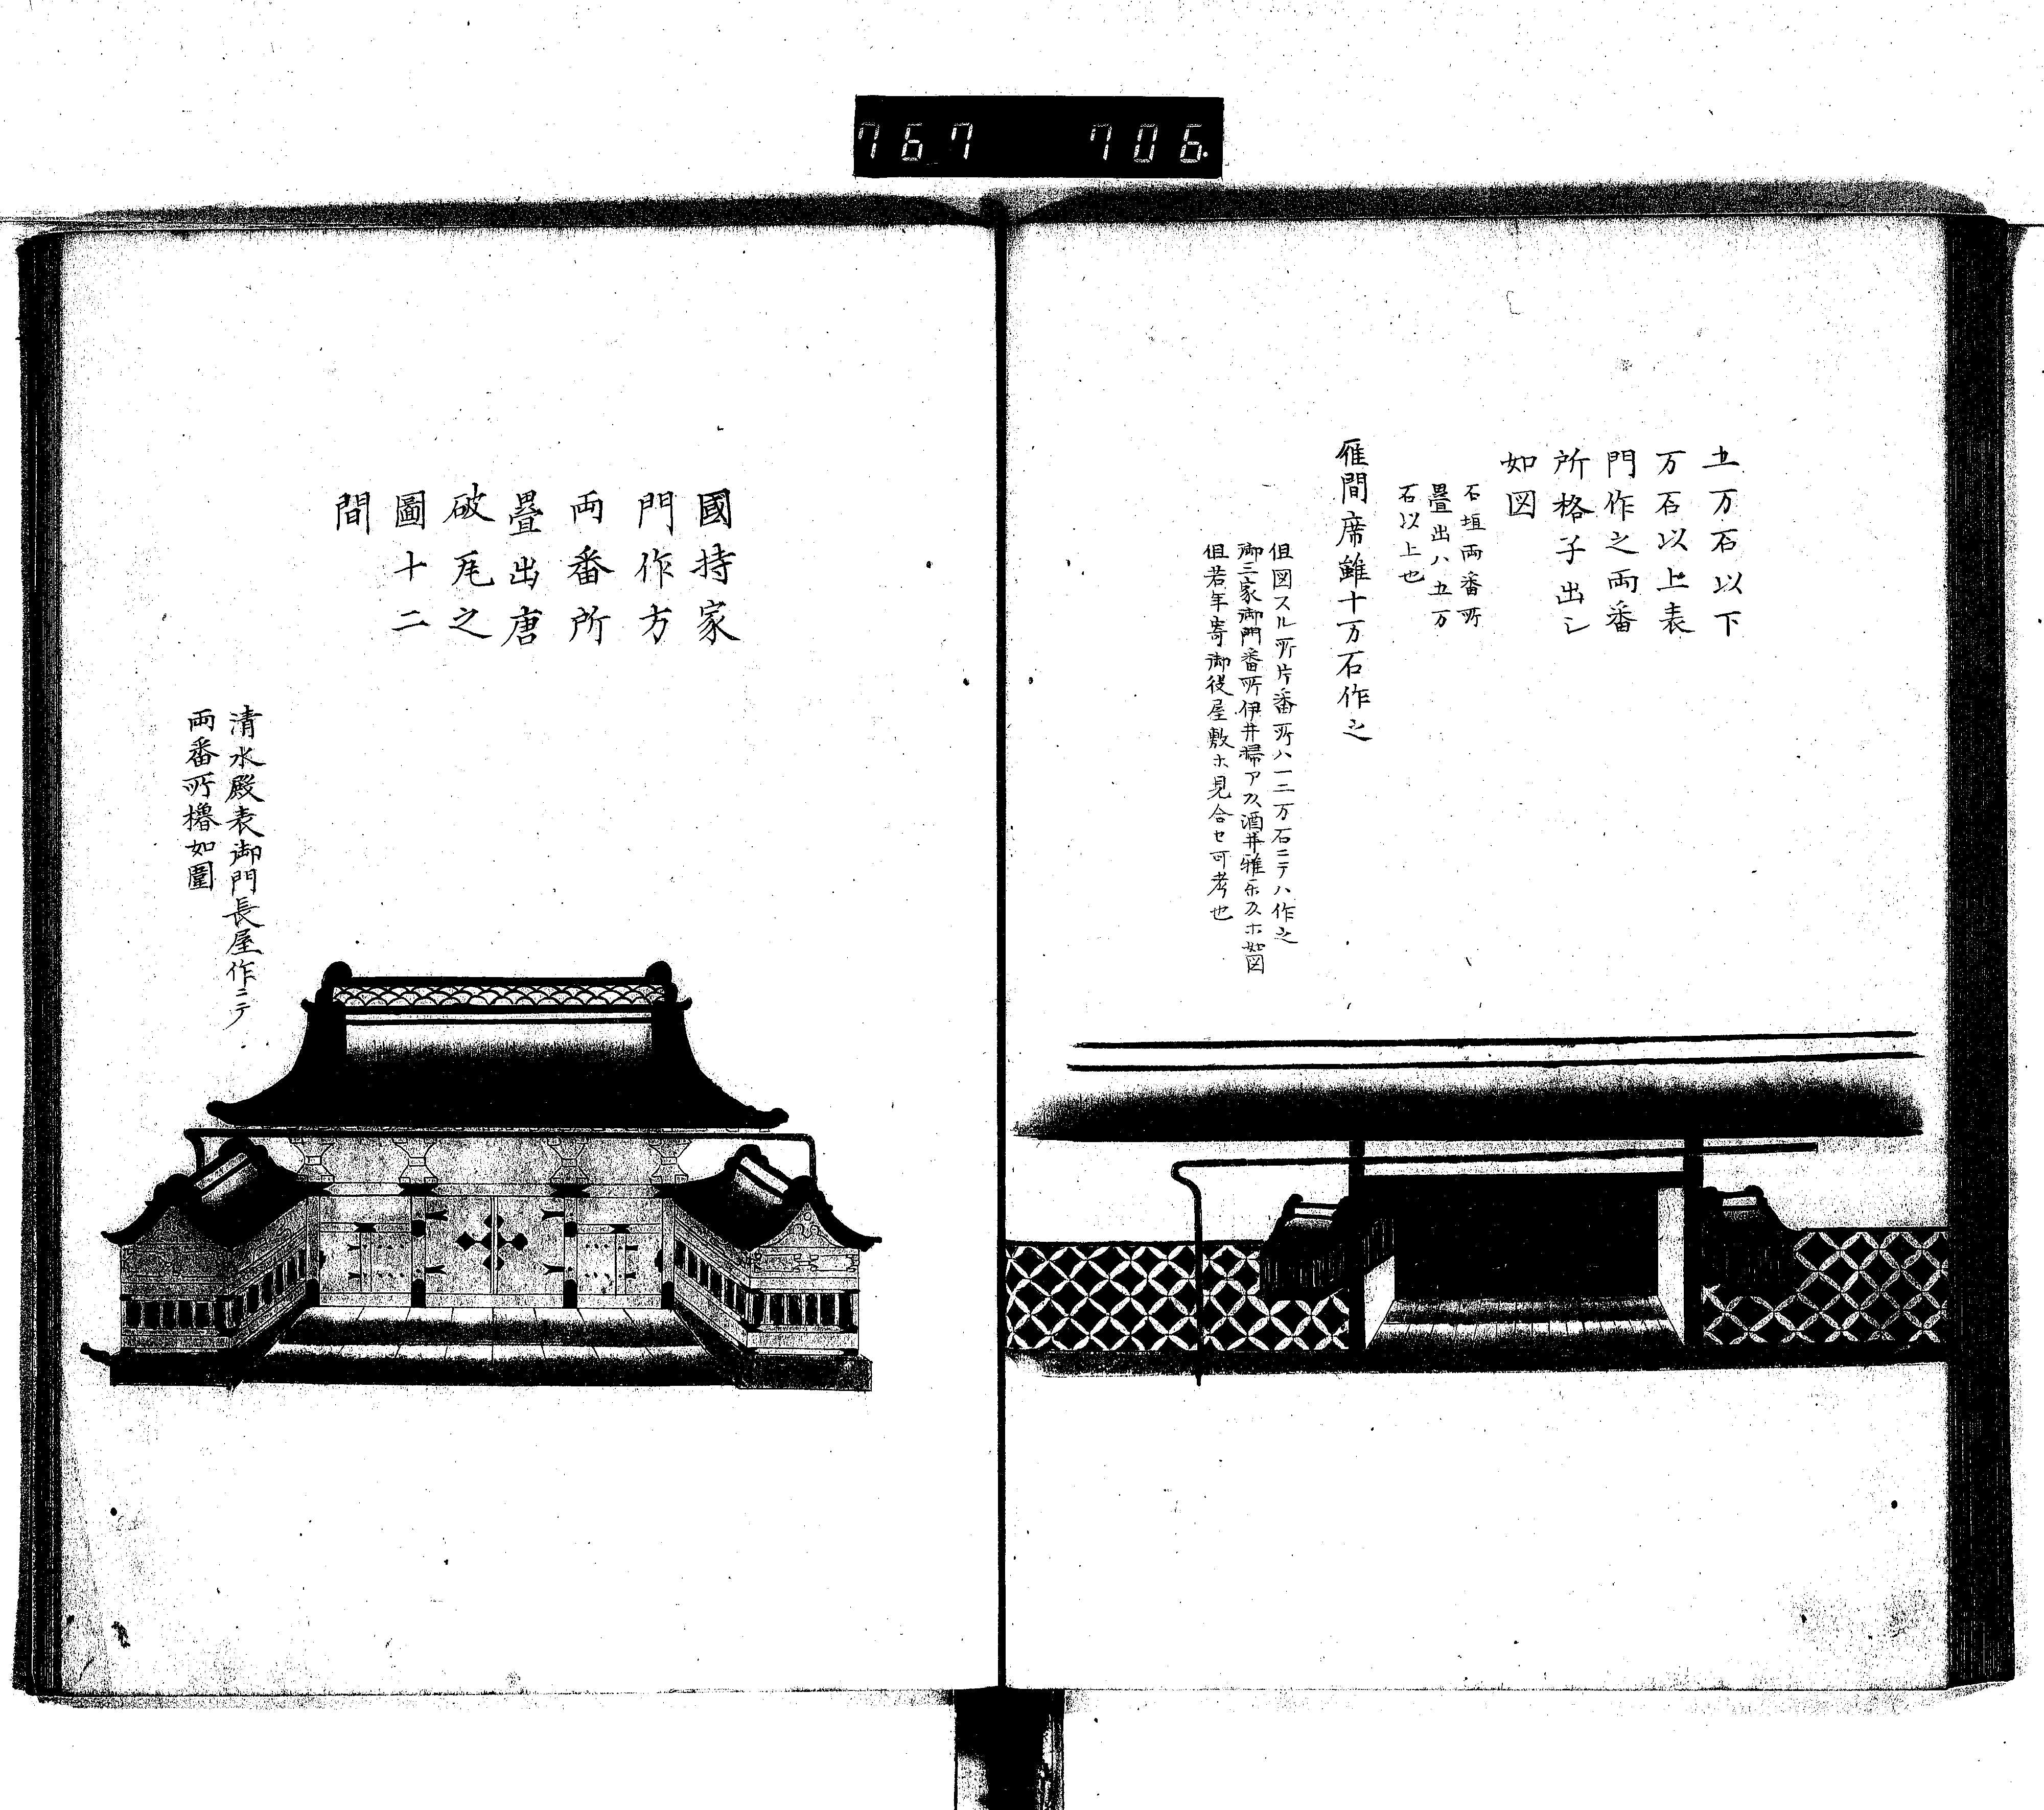 767 706
五万石以下
万石以上表
門作之両番
所格子出シ
如図
石垣両番所
畳出ハ五万
石以上也
雁間席雖十万石作之
但図スル所片番所ハ一二万石ニテハ作之
御三家御門番所伊井掃ア頭酒井雅乐頭ホ如図
但若年寄御役屋敷ホ見合セ可考也
國持家
門作方
両番所
畳出唐
破風之
圖十二
間
清水殿表御門長屋作ニテ
両番所櫓如圖